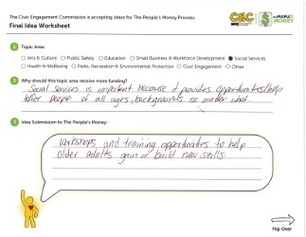 The Civic Engagement Commission is accepting ideas for The People's Money Process.
Final Idea Worksheet
CEC
THE PEOPLE'S MONEY
1 Topic Area:
Arts & Culture Public Safety Education Small Business & Workforce Development Social Services
Health & Wellbeing Parks, Recreation & Environmental Protection Civic Engagement Other
2 Why should this topic area receive more funding?
Social services is important because it provides opportunities/help
other people of all ages, backgrounds no matter what.
3 Idea Submission to The People's Money:
Workshops and training opportunities to help
older adults gain or build new skills.
Flip Over